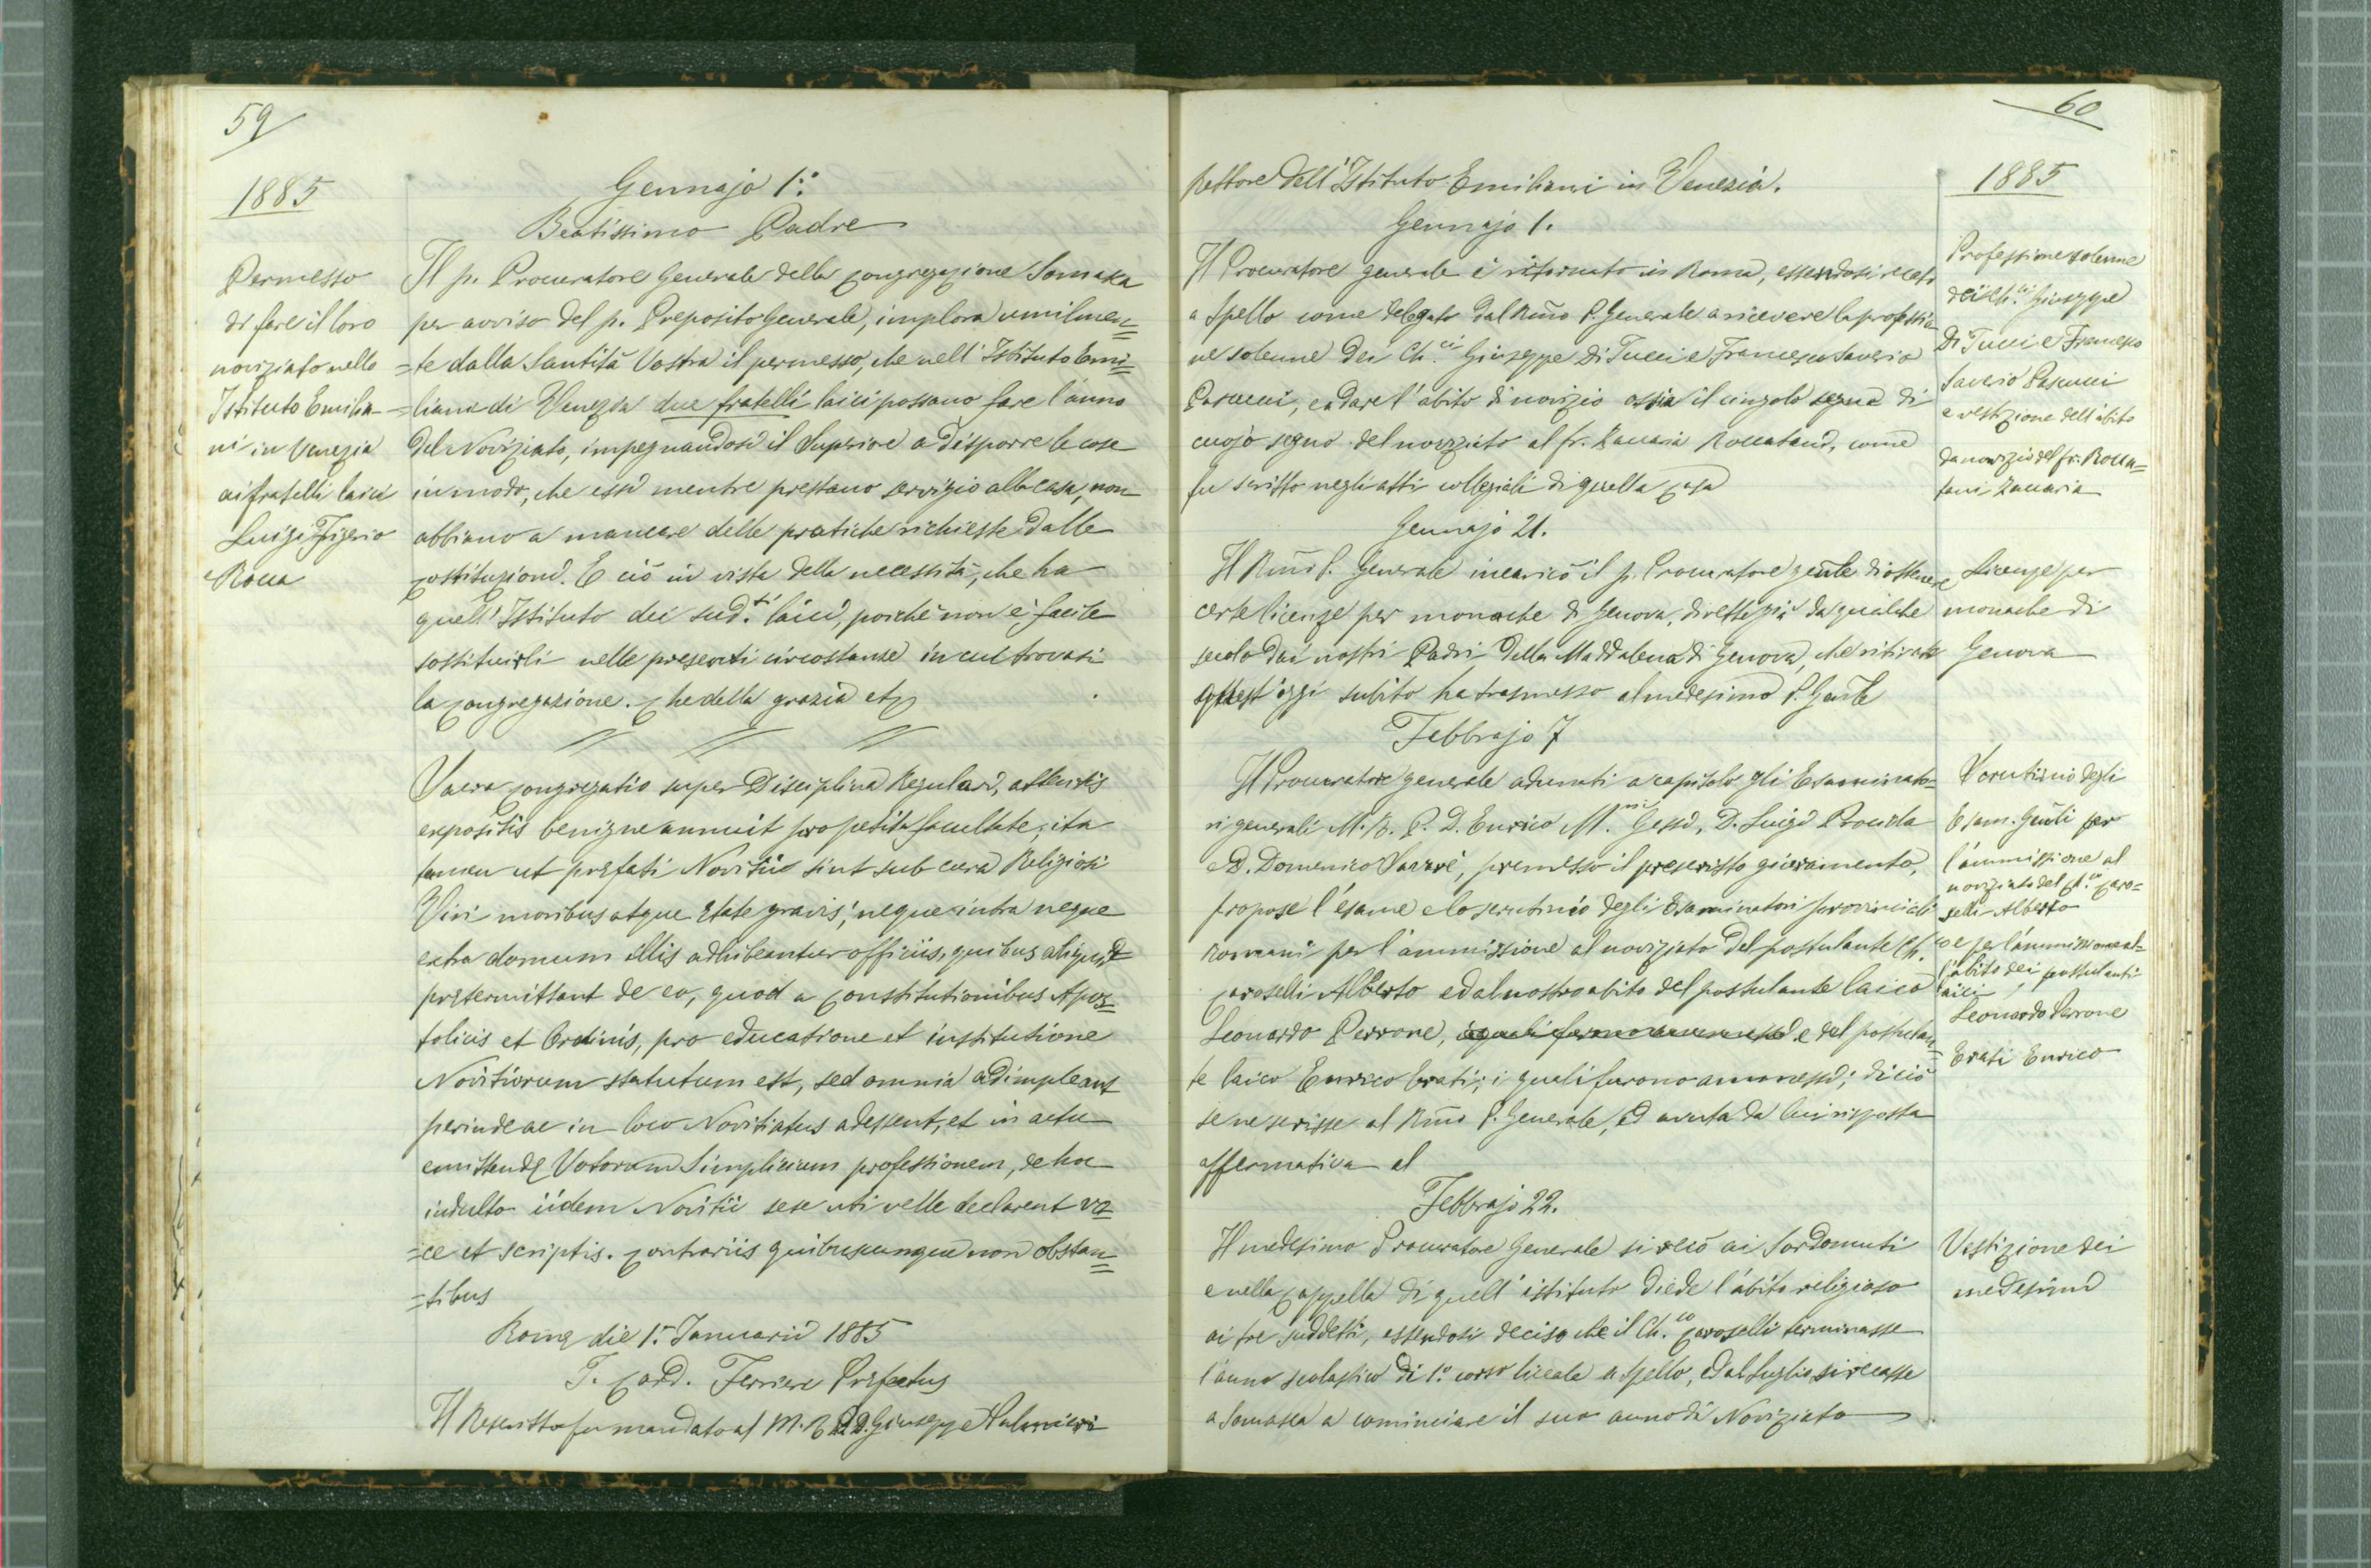 59
1885
Permesso
di fare il loro
noviziato nello
Istituto Emilia-
ni in Venezia
ai fratelli laici
Luigi Figerio
e Rocca
Gennajo 1.º
Beatissimo Padre
Il p. Procuratore Generale della Congregazione Somasca
per avviso del p. Preposito Generale, implora umilmen=
=te dalla Santità Vostra il permesso, che nell' Istituto Emi=
=liani di Venezia due fratelli laici possano fare l'anno
del Noviziato, impegnandosi il Superiore a disporre le cose
in modo, che essi mentre prestano servigio alla casa, non
abbiano a mancare delle pratiche richieste dalle
Costituzioni. E ciò in vista della necessità, che ha
quell' Istituto dei sud.ti laici, poichè non è facile
sostituirli nelle presenti circostanze in cui trovasi
la Congregazione. Che della grazia etc
Sacra Congregatio super Disciplina Regulari, attentis
expositis benigne annuit pro petita facultate, ita
tamen ut præfati Novitii sint sub cura Religiosi
Viri moribus atque ætate gravis, neque intra neque
extra domum illis adhibeantur officiis, quibus aliquid
prætermittant de eo, quod a Constitutionibus Apos=
tolicis et Ordinis, pro educatione et institutione
Novitiorum statutum est, sed omnia adimpleant
perinde ac in loco Novitiatus adessent, et in actu
emittendæ Votorum Simplicium professionem, de hoc
indulto iidem Novitii sese uti velle declarent vo=
=ce et scriptis. Contrariis quibuscunque non obstan=
=tibus
Romæ die 1.ª Januarii 1885
I. Card. Ferrieri Præfectus
Il Rescritto fu mandato al M. R. P. D. Giuseppe Palmieri
60
1885
rettore dell' Istituto Emiliani in Venezia.
Gennajo 1.
Il Procuratore generale è ritornato in Roma, essendosi recato
a Spello come delegato dal Rmo P. Generale a ricevere la professio
ne solenne dei Ch.ci Giuseppe Di Tucci e Francesco Saverio
Pascucci, e a dare l'abito di novizio ossia il cingolo segno di
cuojo segno del noviziato al fr. Zaccaria Roccatani, come
fu scritto negli atti collegiali di quella Casa
Professione solenne
dei Ch.ci Giuseppe
Di Tucci e Francesco
Saverio Pascucci
e vestizione dell'abito
da novizio del fr. Rocca=
tani Zaccaria
Gennajo 21.
Il Rmo P. Generale incaricò il p. Procuratore genle di ottenere
certe licenze per monache di Genova, dirette già da qualche
secolo dai nostri Padri della Maddalena di Genova, che ritirate
quest'oggi subito ha trasmesso al medesimo P. Genle
Licenze per
monache di
Genova
Febbrajo 7
Il Procuratore generale adunati a capitolo gli Esaminato=
ri generali M. R. P. D. Enrico M. Gessi, D. Luigi Procida
e D. Domenico Savarè, premesso il prescritto giuramento,
propose l'esame e lo scrutinio degli Esaminatori provinciali
Romani per l'ammissione al noviziato del postulante Ch.co
Caroselli Alberto ed al nostro abito del postulante laico
Leonardo Perrone, i quali furono ammessi e del postulan=
te laico Enrico Erati; i quali furono ammessi; di ciò
se ne scrisse al Rmo P. Generale, ed avuta da lui risposta
affermativa al
Scrutinio degli
Esam. Genli per
l'ammissione al
noviziato del Ch.co Caro=
selli Alberto
e per l'ammissione al=
l'abito dei postulanti
laici,
Leonardo Perrone
Erati Enrico
Febbrajo 22.
Il medesimo Procuratore Generale si recò ai Sordomuti
e nella Cappella di quell' istituto diede l'abito religioso
ai tre suddetti, essendosi deciso che il Ch.co Caroselli terminasse
l'anno scolastico di 1.º corso liceale a Spello, ed al luglio si recasse
a Somasca a cominciare il suo anno di Noviziato
Vestizione dei
medesimi